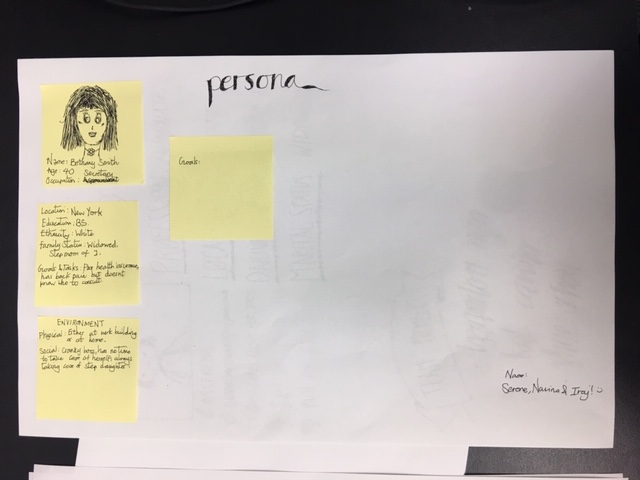 persona
Name: Bethany Smith
Age: 40
Occupation: Secretary
Location: New York
Education: BS.
Ethnicity: White
Family Status: Widowed.
Step mom of 1.
Goals & Tasks: Pay health insurance,
has back pain but doesn't
know who to consult.
ENVIRONMENT
Physical: Either at work building
or at home.
Social: Cranky boss, has no time
to take care of herself, always
taking care of step daughter!
Goals:
Name:
Serene, & Iraj! :)